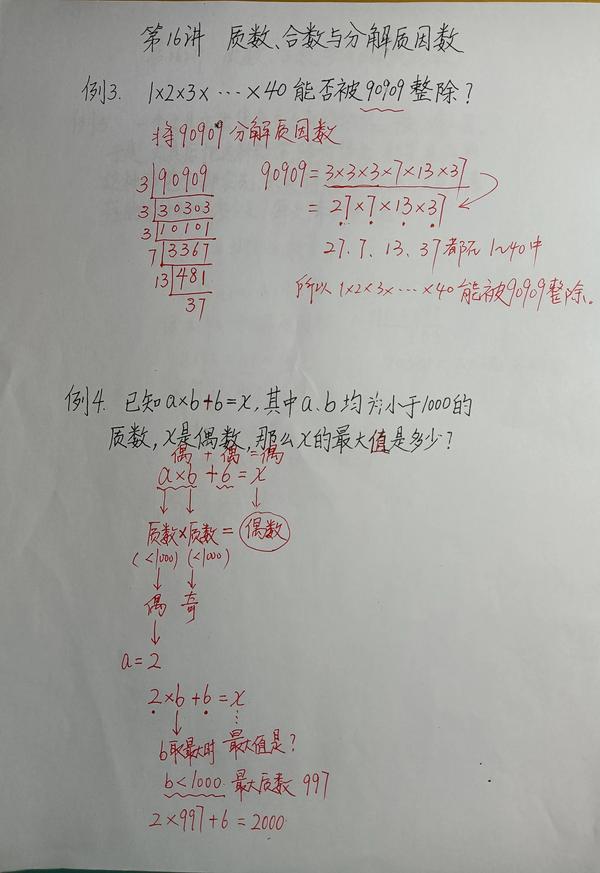 第16讲 质数、合数与分解质因数
例3. 1×2×3×⋯×40能否被90909整除？
将90909分解质因数
3 90909
3 30303
3 10101
7 3367
13 481
37
90909=3×3×3×7×13×37
=27×7×13×37
27、7、13、37都在1~40中
所以1×2×3×⋯×40能被90909整除。
例4. 已知a×b+6=x,其中a、b均为小于1000的
质数,x是偶数,那么x的最大值是多少？
偶+偶=偶
a×b+6=x
质数×质数=偶数
(<1000) (<1000)
偶 奇
a=2
2×b+6=x
b取最大时 最大值是？
b<1000 最大质数 997
2×997+6=2000